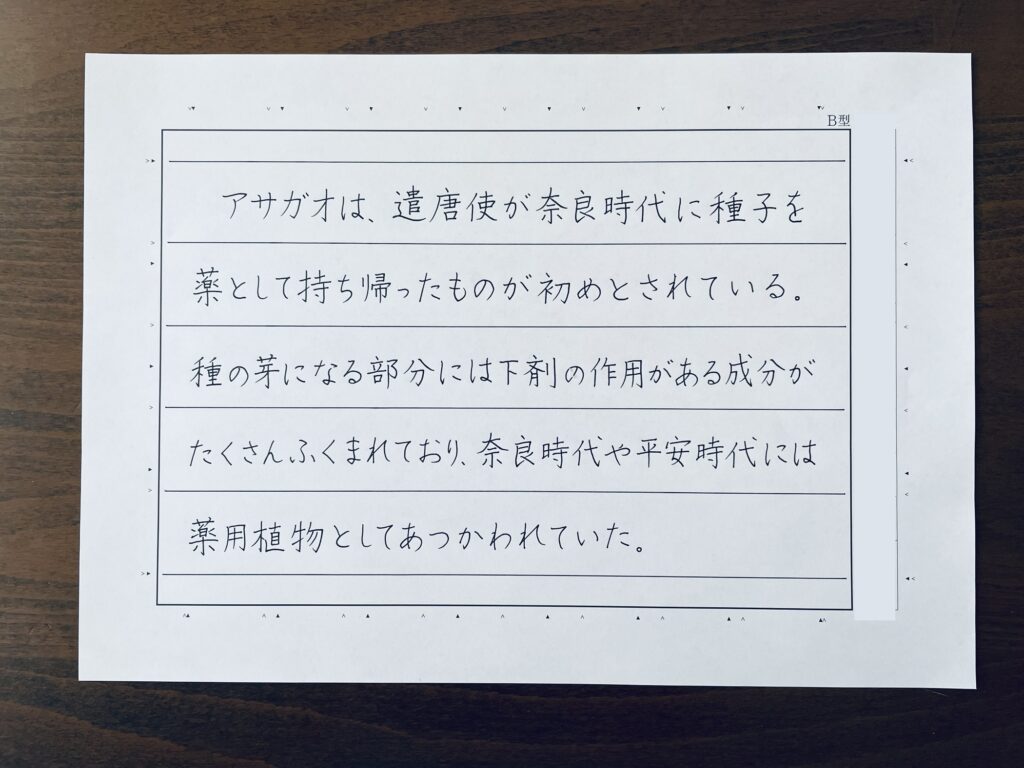 B型
アサガオは、遣唐使が奈良時代に種子を
薬として持ち帰ったものが初めとされている。
種の芽になる部分には下剤の作用がある成分が
たくさんふくまれており、奈良時代や平安時代には
薬用植物としてあつかわれていた。